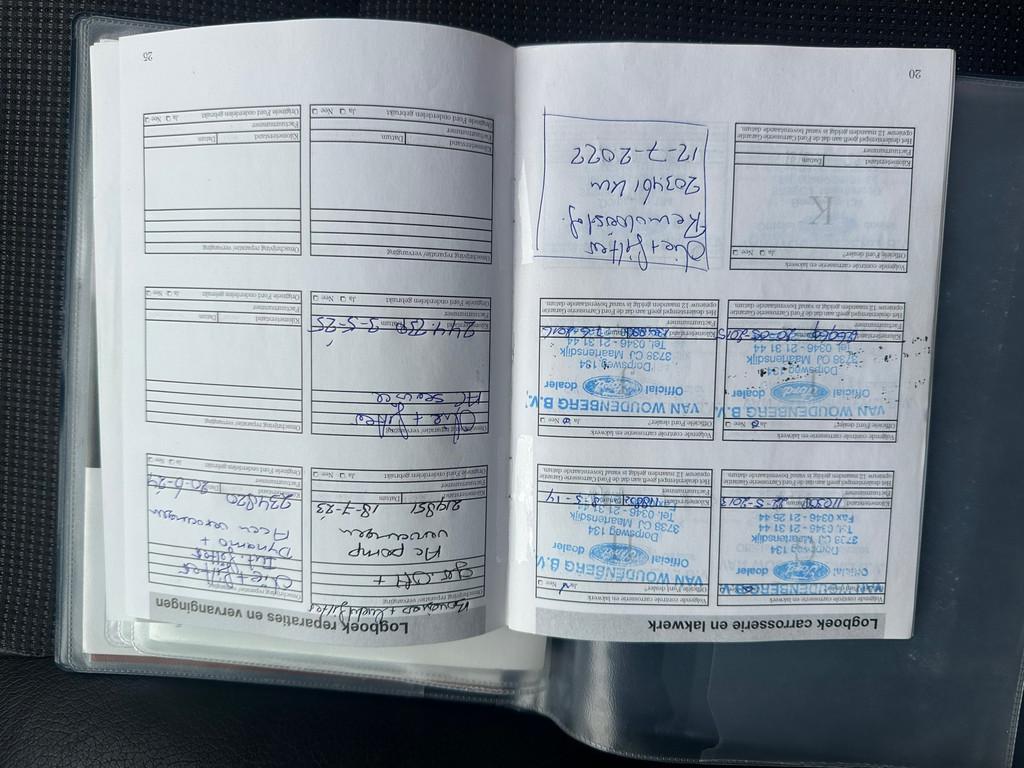 Logboek carrosserie en lakwerk
Volgende controle carrosserie en lakwerk
Officiële Ford dealer? Ja Nee
VAN WOUDENBERG B.V.
Official Ford dealer
Dorpsweg 134
3738 CJ Maartensdijk
Tel. 0346 - 21 31 44
Fax 0346 - 21 26 44
Kilometerstand Datum
Factuurnummer
Het dealerstempel geeft aan dat de Ford Carrosserie Garantie
opnieuw 12 maanden geldig is vanaf bovenstaande datum.
Volgende controle carrosserie en lakwerk
Officiële Ford dealer? Ja Nee
VAN WOUDENBERG B.V.
Official Ford dealer
Dorpsweg 134
3738 CJ Maartensdijk
Tel.
Fax
Kilometerstand Datum
Factuurnummer
Het dealerstempel geeft aan dat de Ford Carrosserie Garantie
opnieuw 12 maanden geldig is vanaf bovenstaande datum.
Volgende controle carrosserie en lakwerk
Officiële Ford dealer? Ja Nee
VAN WOUDENBERG B.V.
Official Ford dealer
Dorpsweg 134
3738 CJ Maartensdijk
Tel. 0346 - 21 31 44
Kilometerstand 20-05-2015
Factuurnummer
Het dealerstempel geeft aan dat de Ford Carrosserie Garantie
opnieuw 12 maanden geldig is vanaf bovenstaande datum.
Volgende controle carrosserie en lakwerk
Officiële Ford dealer? Ja Nee
VAN WOUDENBERG B.V.
Official Ford dealer
Dorpsweg 134
3738 CJ Maartensdijk
Tel. 0346 - 21 31 44
Kilometerstand
Factuurnummer
Het dealerstempel geeft aan dat de Ford Carrosserie Garantie
opnieuw 12 maanden geldig is vanaf bovenstaande datum.
Volgende controle carrosserie en lakwerk
Officiële Ford dealer? Ja Nee
K
Kilometerstand Datum
Factuurnummer
Het dealerstempel geeft aan dat de Ford Carrosserie Garantie
opnieuw 12 maanden geldig is vanaf bovenstaande datum.
Olie + filters
Remvloeistof.
203461 km
12-7-2022
20
Logboek reparaties en vervangingen
Omschrijving reparatie/ vervanging
Ac pomp
vervangen
219851 18-7-23
Kilometerstand Datum
Factuurnummer
Originele Ford onderdelen gebruikt Ja Nee
Omschrijving reparatie/ vervanging
Olie + filter
Int. filter
Dynamo +
Accu vervangen
224820 20-6-24
Kilometerstand Datum
Factuurnummer
Originele Ford onderdelen gebruikt Ja Nee
Omschrijving reparatie/ vervanging
Olie + filter
AC service
244750 3-5-25
Kilometerstand
Factuurnummer
Originele Ford onderdelen gebruikt Ja Nee
Omschrijving reparatie/ vervanging
Kilometerstand Datum
Factuurnummer
Originele Ford onderdelen gebruikt Ja Nee
Omschrijving reparatie/ vervanging
Kilometerstand Datum
Factuurnummer
Originele Ford onderdelen gebruikt Ja Nee
Omschrijving reparatie/ vervanging
Kilometerstand Datum
Factuurnummer
Originele Ford onderdelen gebruikt Ja Nee
25